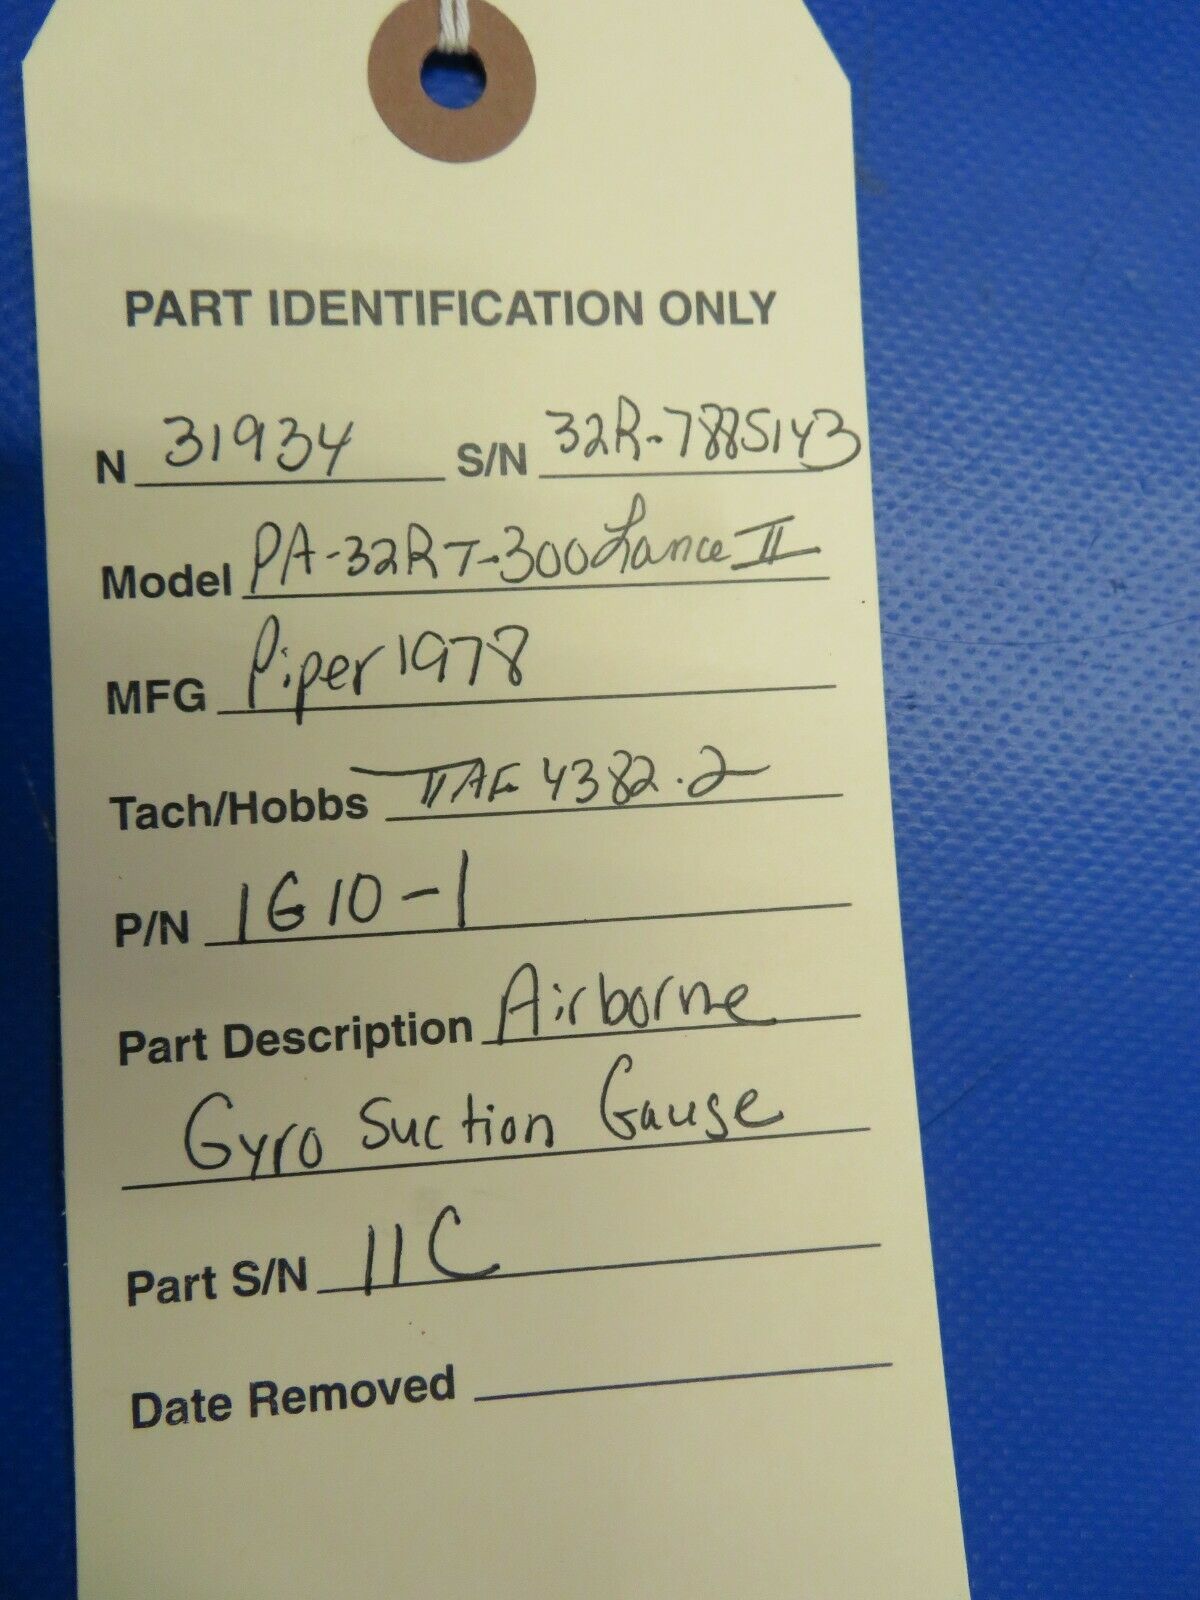 PART IDENTIFICATION ONLY
N 31934 S/N 32R-7885143
Model PA-32RT-300 Lance II
MFG Piper 1978
Tach/Hobbs TTAF 4382.2
P/N 1G10-1
Part Description Airborne
Gyro Suction Gauge
Part S/N 11C
Date Removed